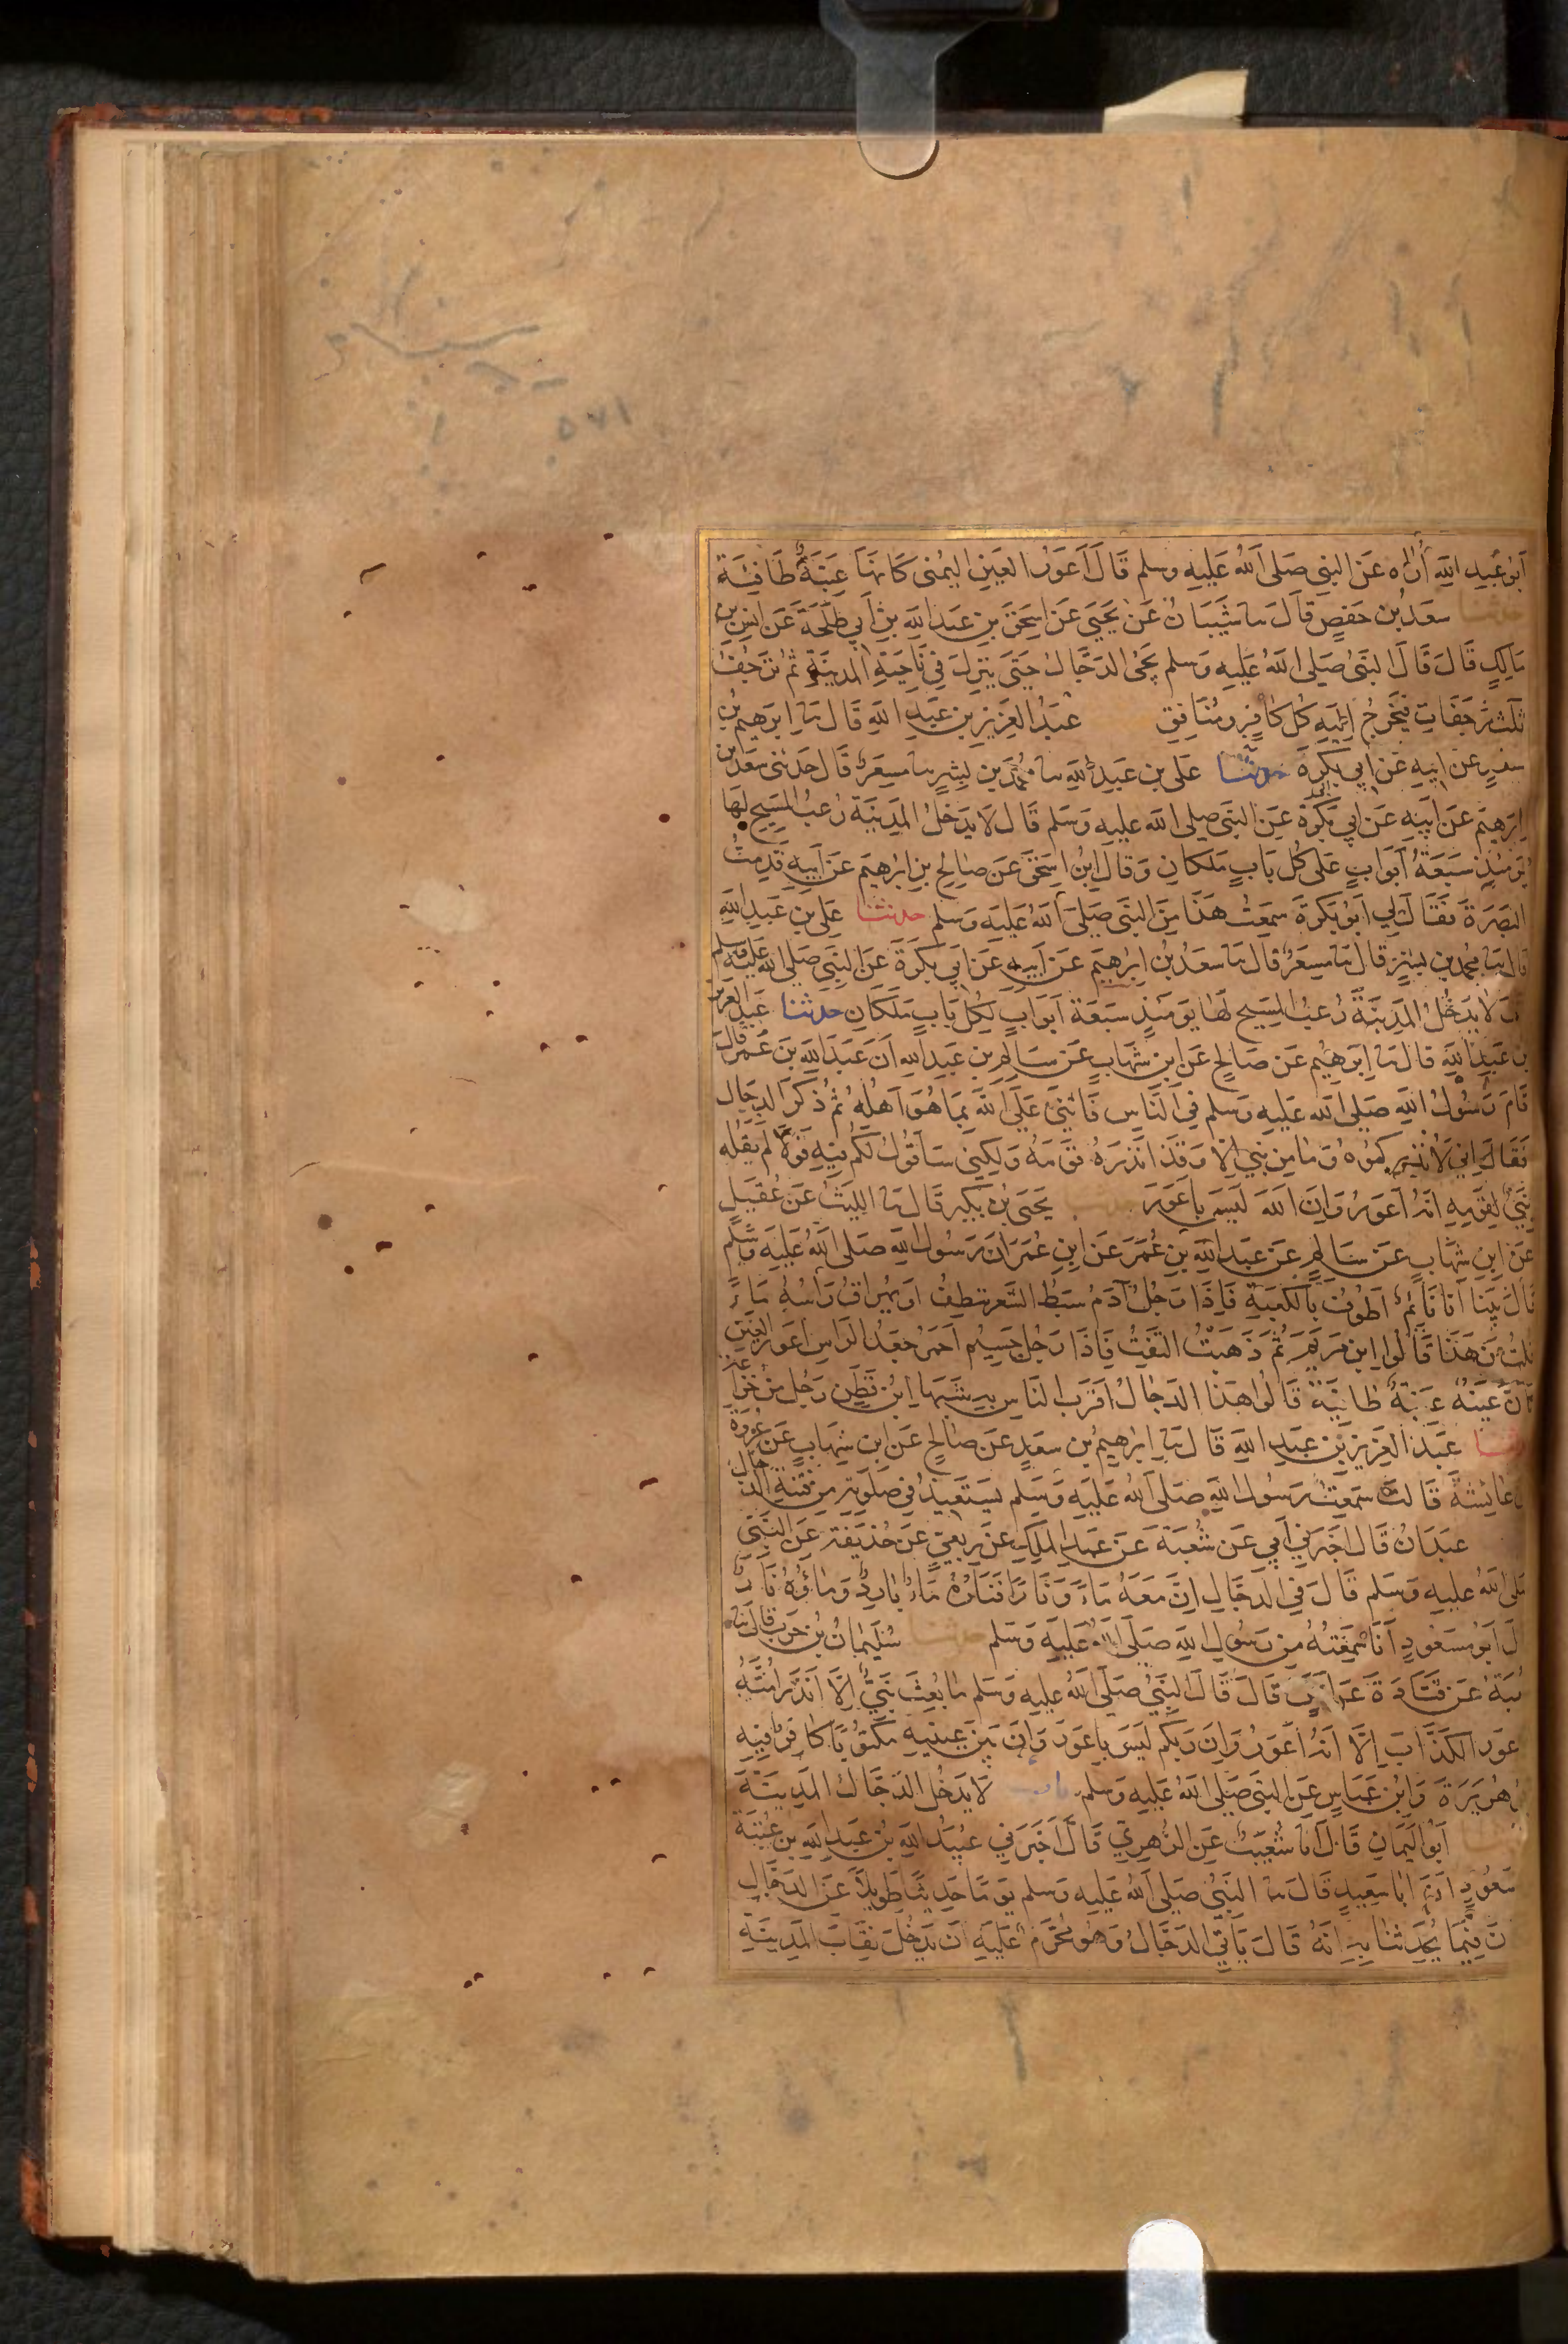 ابو عبد الله اُراه عن النبي صلى الله عليه وسلم قال اعور العين اليمنى كانها عنبة طافية
حدثنا سعد بن حفص قال سا شيبان عن يحيى عن اسحق بن عبد الله بن ابي طلحة عن انس بن
مالك قال قال النبي صلى الله عليه وسلم يجئ الدجال حتى ينزل في ناحية المدينة ثم ترجف
ثلث رجفات فيخرج اليه كل كافر ومنافق عبد العزيز بن عبد الله قال سا ابرهيم بن
سعد عن ابيه عن ابي بكرة حدثنا على بن عبد الله سا محمد بن بشر سا مسعر قال حدثنى سعد بن
ابرهيم عن ابيه عن ابي بكرة عن النبي صلى الله عليه وسلم قال لا يدخل المدينة رعب المسيح لها
يومئذ سبعة ابواب على كل باب ملكان وقال ابن اسحق عن صالح بن ابرهيم عن ابيه قدمت
البصرة فقال لي ابو بكرة سمعت هذا من النبي صلى الله عليه وسلم حدثنا على بن عبد الله
قال سا محمد بن بشر قال سا مسعر قال سا سعد بن ابرهيم عن ابيه عن ابي بكرة عن النبي صلى الله عليه وسلم
قال لا يدخل المدينة رعب المسيح لها يومئذ سبعة ابواب لكل باب ملكان حدثنا عبد العزيز
بن عبد الله قال سا ابرهيم عن صالح عن ابن شهاب عن سالم بن عبد الله ان عبد الله بن عمر قال
قام رسول الله صلى الله عليه وسلم في الناس فاثنى على الله بما هو اهله ثم ذكر الدجال
فقال اني لانذركموه وما من نبي الا وقد انذره قومه ولكني ساقول لكم فيه قولا لم يقله
نبي لقومه انه اعور وان الله ليس باعور يحيى بن بكير قال سا الليث عن عقيل
عن ابن شهاب عن سالم عن عبد الله بن عمر عن ابن عمر ان رسول الله صلى الله عليه وسلم
قال بينا انا نائم اطوف بالكعبة فاذا رجل آدم سبط الشعر ينطف او يهراق راسه ماء
قلت من هذا قالوا ابن مريم ثم ذهبت التفت فاذا رجل جسيم احمر جعد الراس اعور العين
كان عينه عنبة طافية قالوا هذا الدجال اقرب الناس به شبها ابن قطن رجل من خزاعة
حدثنا عبد العزيز بن عبد الله قال سا ابرهيم بن سعد عن صالح عن ابن شهاب عن عروة
ان عائشة قالت سمعت رسول الله صلى الله عليه وسلم يستعيذ في صلوته من فتنة الدجال
عبدان قال اخبرني ابي عن شعبة عن عبد الملك عن ربعي عن حذيفة عن النبي
صلى الله عليه وسلم قال في الدجال ان معه ماء ونارا فناره ماء بارد وماؤه نار
قال ابو مسعود انا سمعته من رسول الله صلى الله عليه وسلم حدثنا سليمان بن حرب قال سا
شعبة عن قتادة عن انس قال قال النبي صلى الله عليه وسلم ما بعث نبي الا انذر امته
الاعور الكذاب الا انه اعور وان ربكم ليس باعور وان بين عينيه مكتوبا كافر فيه
ابو هريرة وابن عباس عن النبي صلى الله عليه وسلم باب لا يدخل الدجال المدينة
ابو اليمان قال انا شعيب عن الزهري قال اخبرني عبيد الله بن عبد الله بن عتبة
مسعود ان ابا سعيد قال سا النبي صلى الله عليه وسلم يوما حديثا طويلا عن الدجال
ن فيما يحدثنا به انه قال ياتي الدجال وهو محرم عليه ان يدخل نقاب المدينة